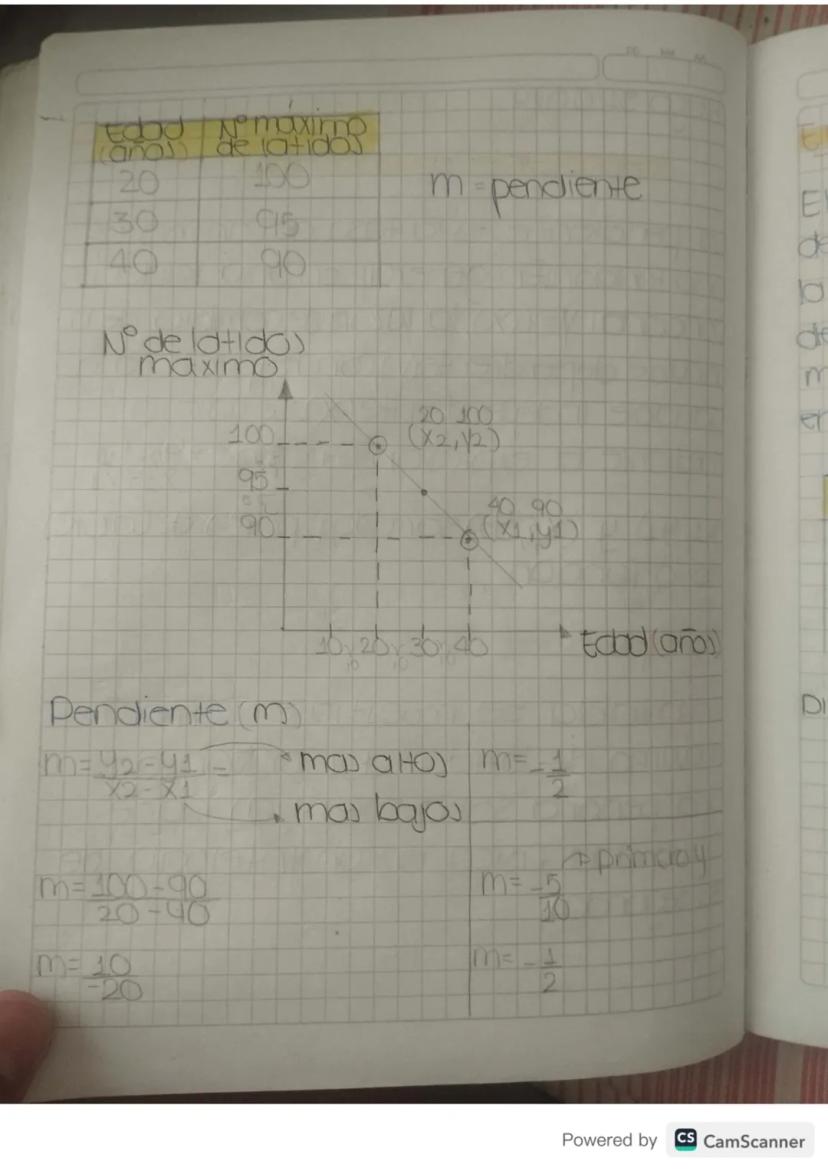 Edad (años) Nº máximo de latidos
20 100
30 95
40 90
m = pendiente
Nº de latidos
maximo
100
95
90
20 100
(x2,y2)
40 90
(x1,y1)
10 20 30 40
Edad (años)
Pendiente (m)
m = y2 - y1 / x2 - x1 =
mas altos
mas bajos
m = 100 - 90 / 20 - 40
m = 10 / -20
m = - 1 / 2
m = -5 / 10
m = - 1 / 2
Powered by CS CamScanner